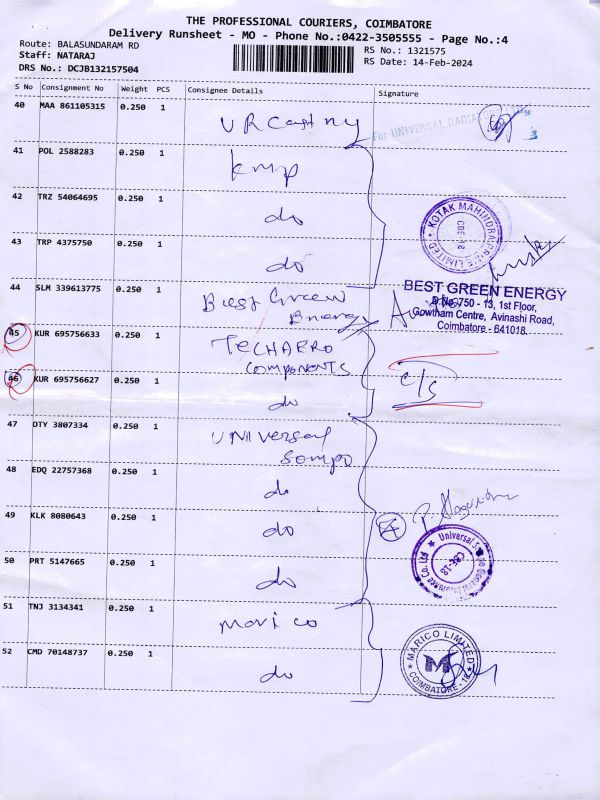 THE PROFESSIONAL COURIERS, COIMBATORE
Delivery Runsheet - MO - Phone No.:0422-3505555 - Page No.:4
Route: BALASUNDARAM RD
RS No.: 1321575
Staff: NATARAJ
RS Date: 14-Feb-2024
DRS No.: DCJB132157504
S No Consignment No Weight PCS Consignee Details Signature
40 MAA 861105315 0.250 1
For UNIVERSAL RADIATORS
41 POL 2588283 0.250 1 kmp
42 TRZ 54064695 0.250 1 do
KOTAK MAHINDRA LIMITED
CBE-18
43 TRP 4375750 0.250 1 do
44 SLM 339613775 0.250 1 Best Green Energy
BEST GREEN ENERGY
D.No. 750 - 13, 1st Floor,
Gowtham Centre, Avinashi Road,
Coimbatore - 641018.
45 KUR 695756633 0.250 1 TECHAERO
COMPONENTS
46 KUR 695756627 0.250 1 do
c/s
47 OTY 3807334 0.250 1 UNIVersal
Sompo
48 EDQ 22757368 0.250 1 do
49 KLK 8080643 0.250 1 do
50 PRT 5147665 0.250 1 do
Universal Co. Ltd
CBE-18
51 TNJ 3134341 0.250 1 Marico
52 CMD 70148737 0.250 1 do
MARICO LIMITED
M
COIMBATORE - 18